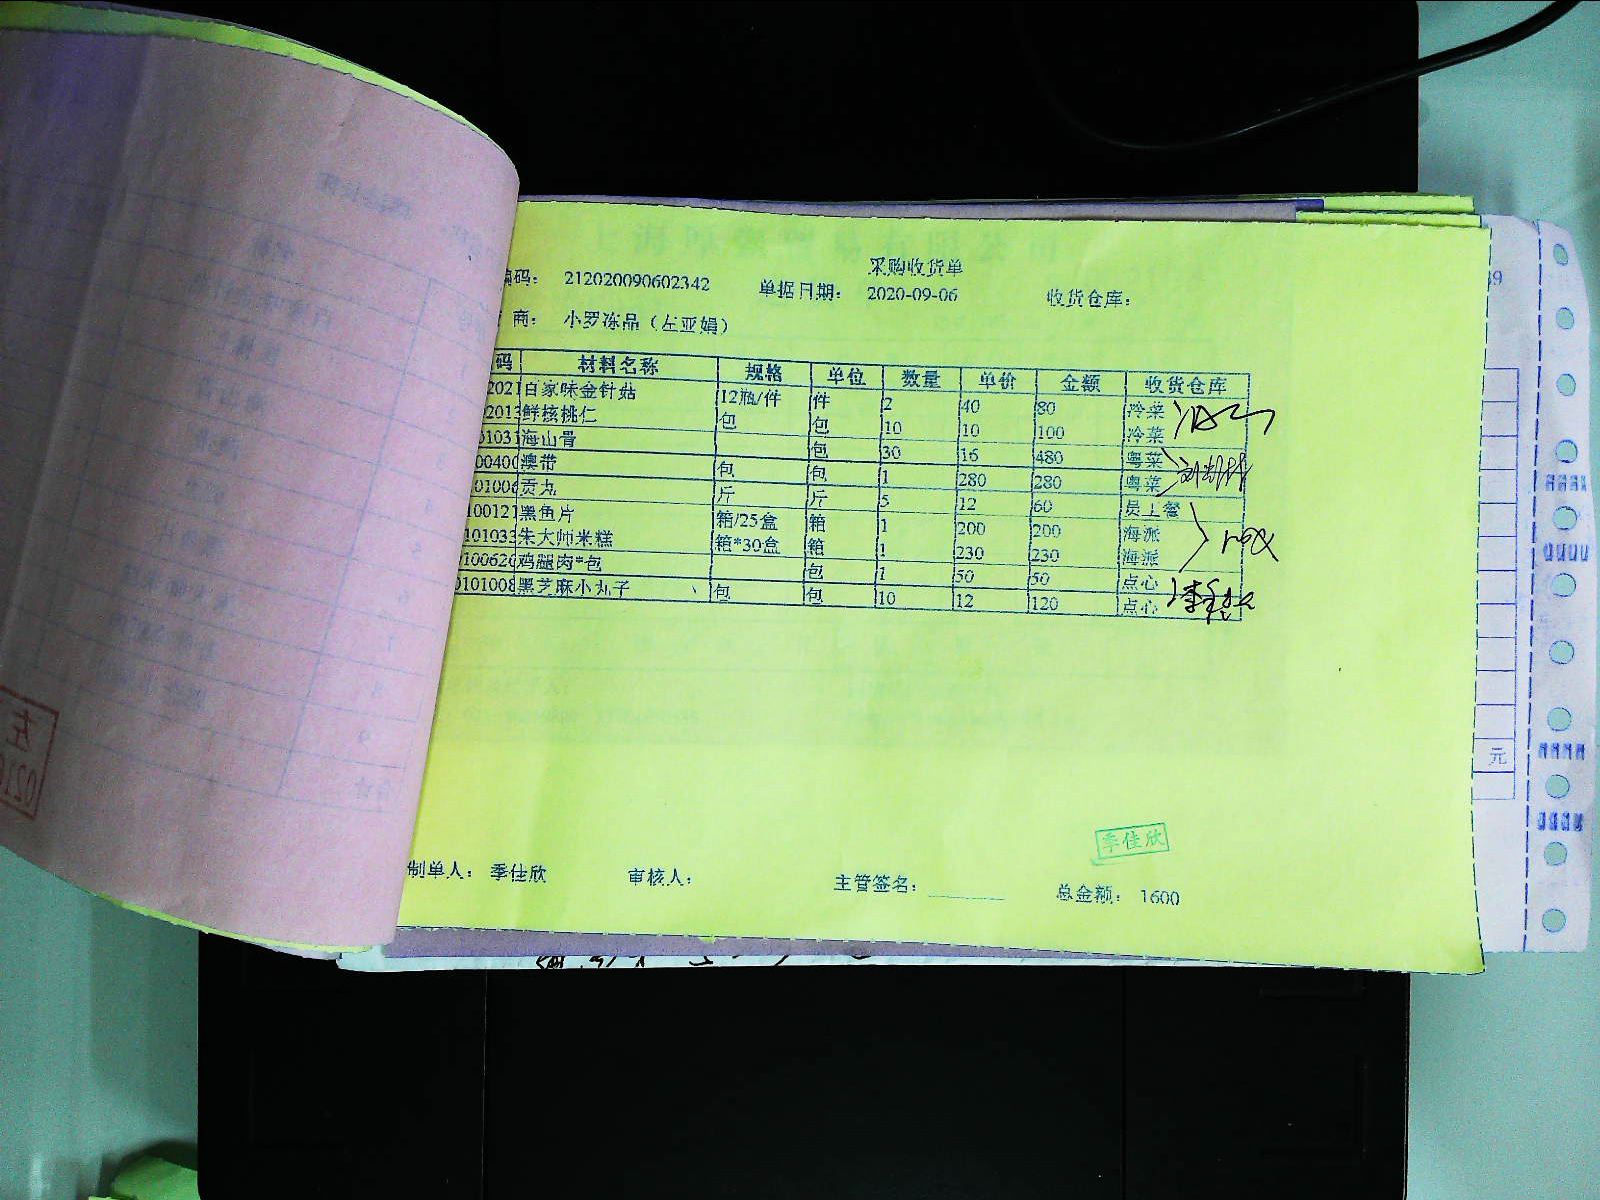 采购收货单
编码： 212020090602342 单据日期： 2020-09-06 收货仓库：
商： 小罗冻品（左亚娟）
码 材料名称 规格 单位 数量 单价 金额 收货仓库
2021 百家味金针菇 12瓶/件 件 2 40 80 冷菜
2013 鲜核桃仁 包 包 10 10 100 冷菜
01031 海山骨 包 30 16 480 粤菜
00400 澳带 包 包 1 280 280 粤菜
01006 贡丸 斤 斤 5 12 60 员工餐
100121 黑鱼片 箱/25盒 箱 1 200 200 海派
101033 朱大师米糕 箱*30盒 箱 1 230 230 海派
100620 鸡腿肉*包 包 1 50 50 点心
0101008 黑芝麻小丸子 包 包 10 12 120 点心
元
季佳欣
制单人： 季佳欣 审核人： 主管签名： 总金额： 1600